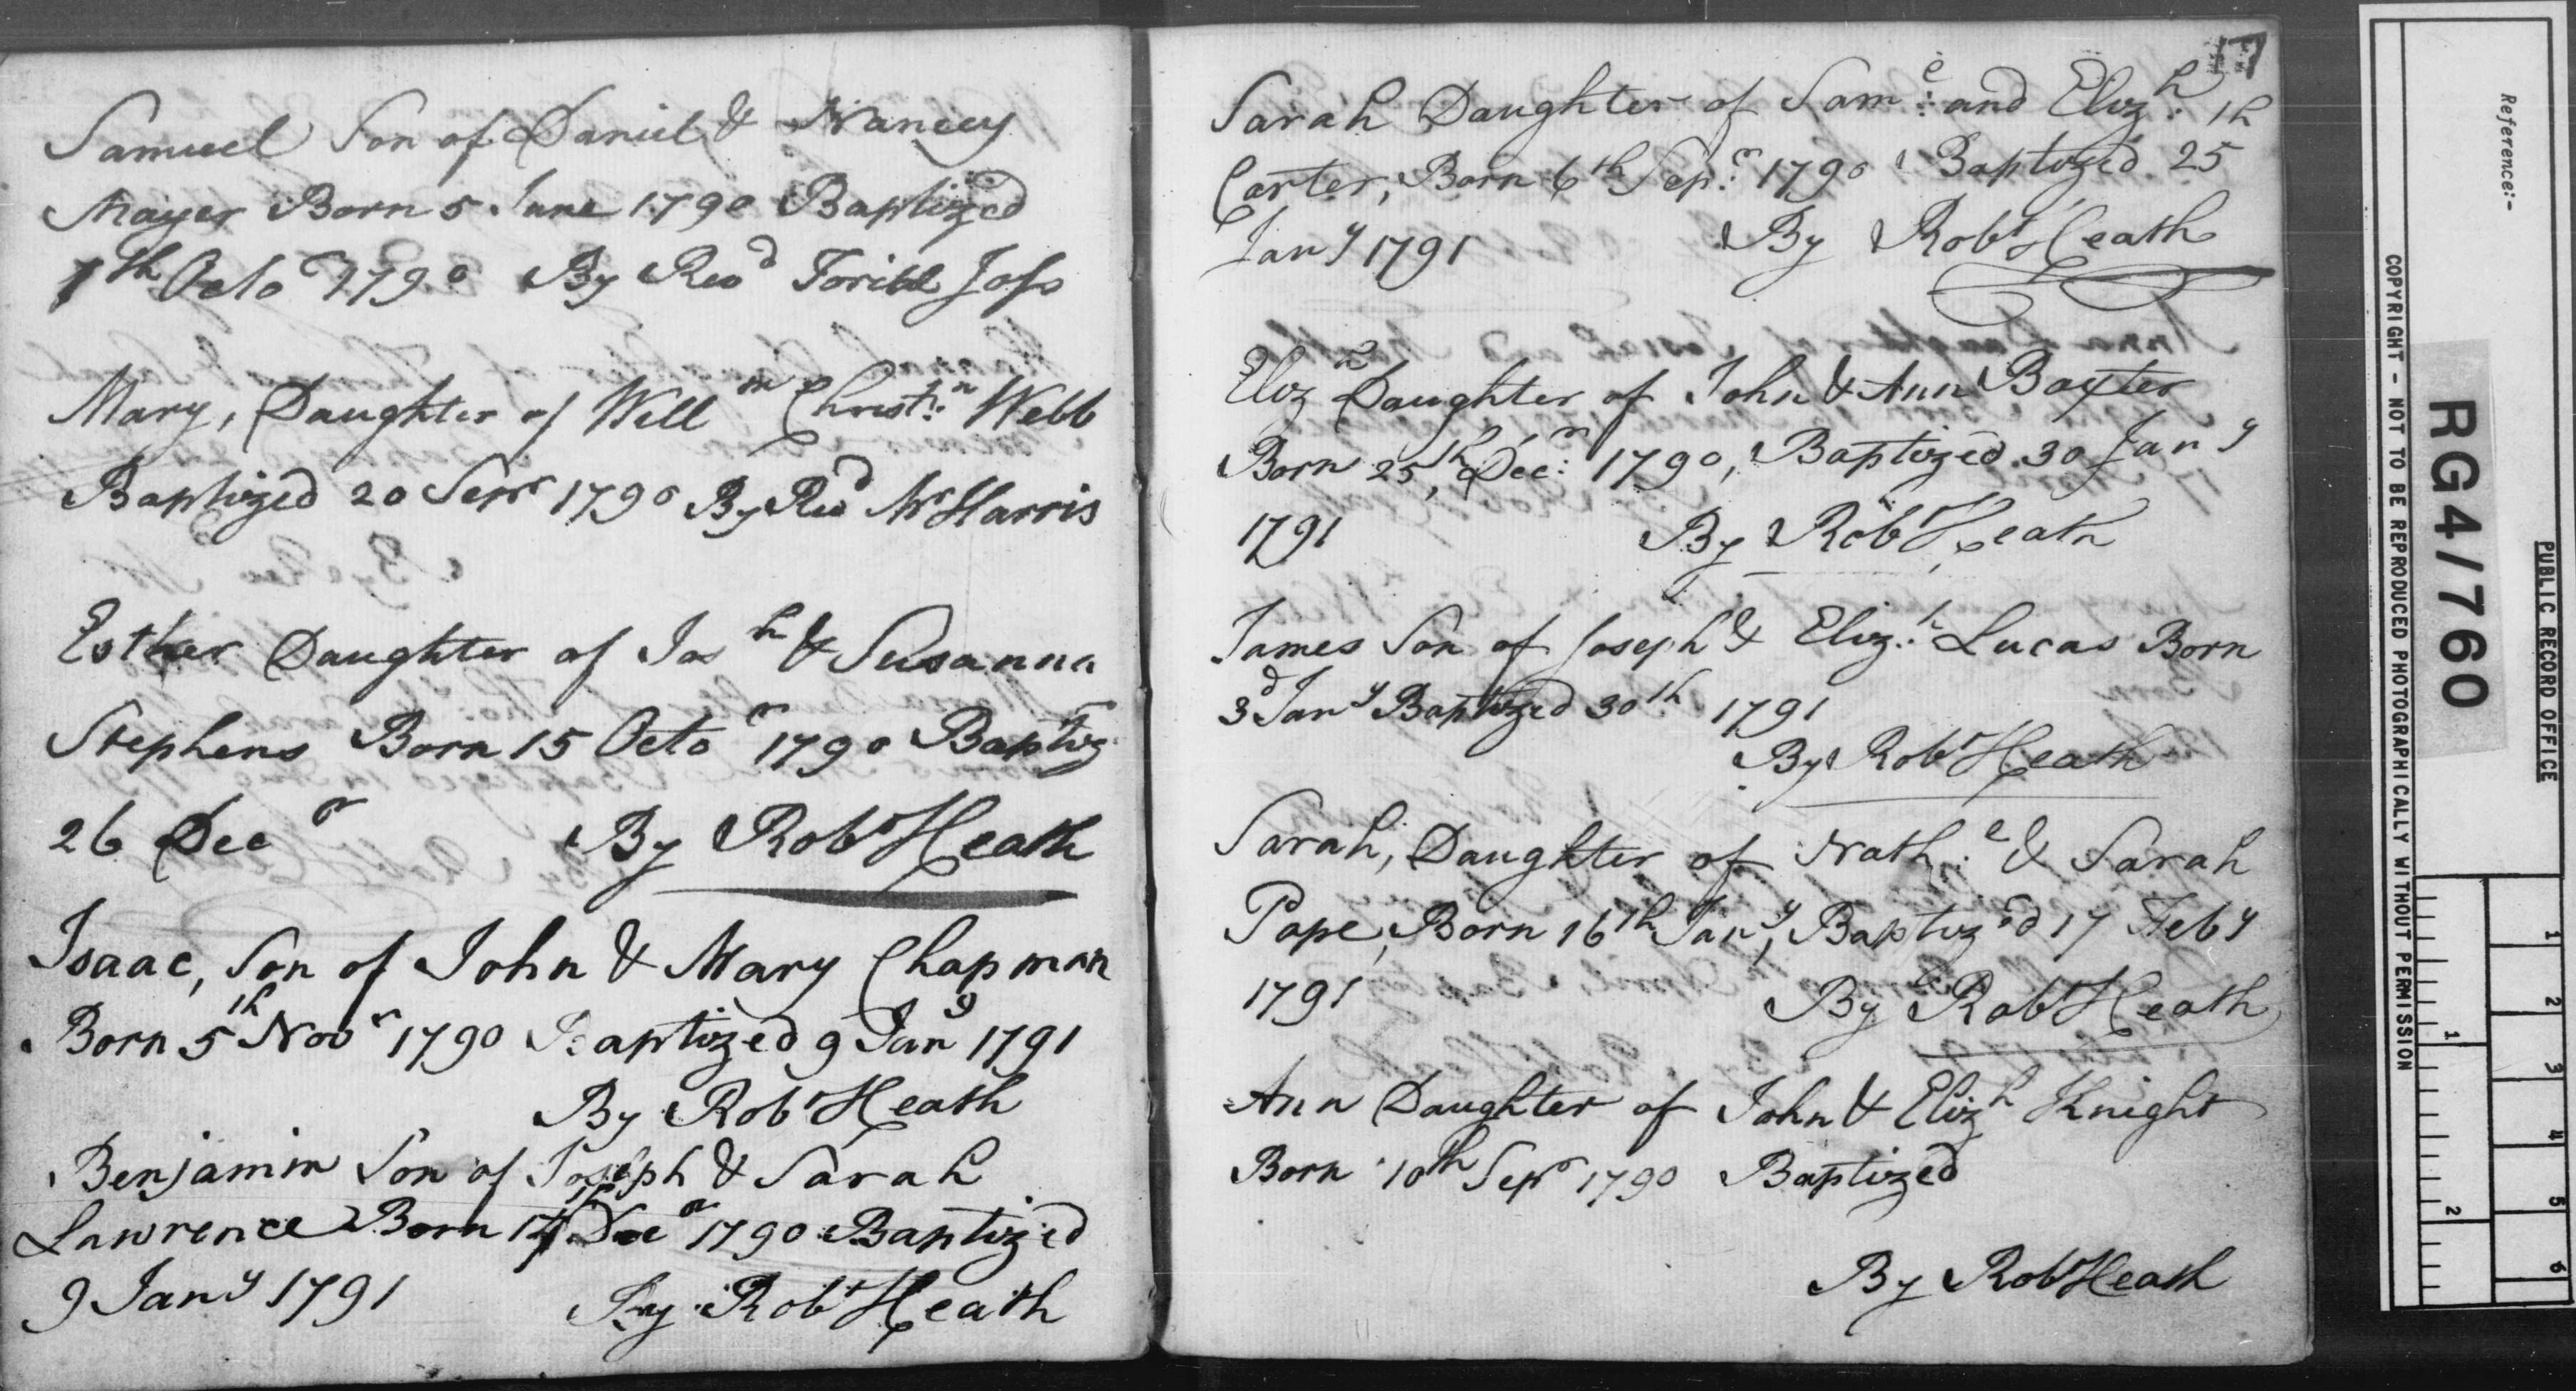 Samuel Son of Daniel & Nancey
Mayer Born 5 June 1790 Baptized
7th Octor 1790 By Revd Torial Joss
Mary, Daughter of Willm Christn: Webb
Baptized 20 Sepr 1790 By Revd Mr Harris
Esther Daughter of Josh & Susanna
Stephens Born 15 Octor 1790 Baptiz
26 Decr By Robt Heath
Isaac, Son of John & Mary Chapman
Born 5th Novr 1790 Baptized 9 Jany 1791
By Robt Heath
Benjamin Son of Joseph & Sarah
Lawrence Born 14th Decr 1790 Baptized
9 Jany 1791 By Robt Heath
17
Sarah Daughter of Saml: and Elizh:
Carter, Born 6th Sepr: 1790 Baptized 25th
Jany 1791 By Robt Heath
Elizh Daughter of John & Ann Baxter
Born 25th, Decr: 1790, Baptized 30 Jany
1791 By Robt Heath
James Son of Joseph & Elizh: Lucas Born
3d Jany Baptized 30th 1791
By Robt Heath
Sarah, Daughter of Nathl: & Sarah
Pope, Born 16th Jany, Baptized 17 Feby
1791 By Robt Heath
Ann Daughter of John & Elizh Knight
Born 10th Sepr 1790 Baptized
By Robt Heath
Reference:-
RG4/760
PUBLIC RECORD OFFICE
COPYRIGHT - NOT TO BE REPRODUCED PHOTOGRAPHICALLY WITHOUT PERMISSION
1 2 3 4 5 6
1 2